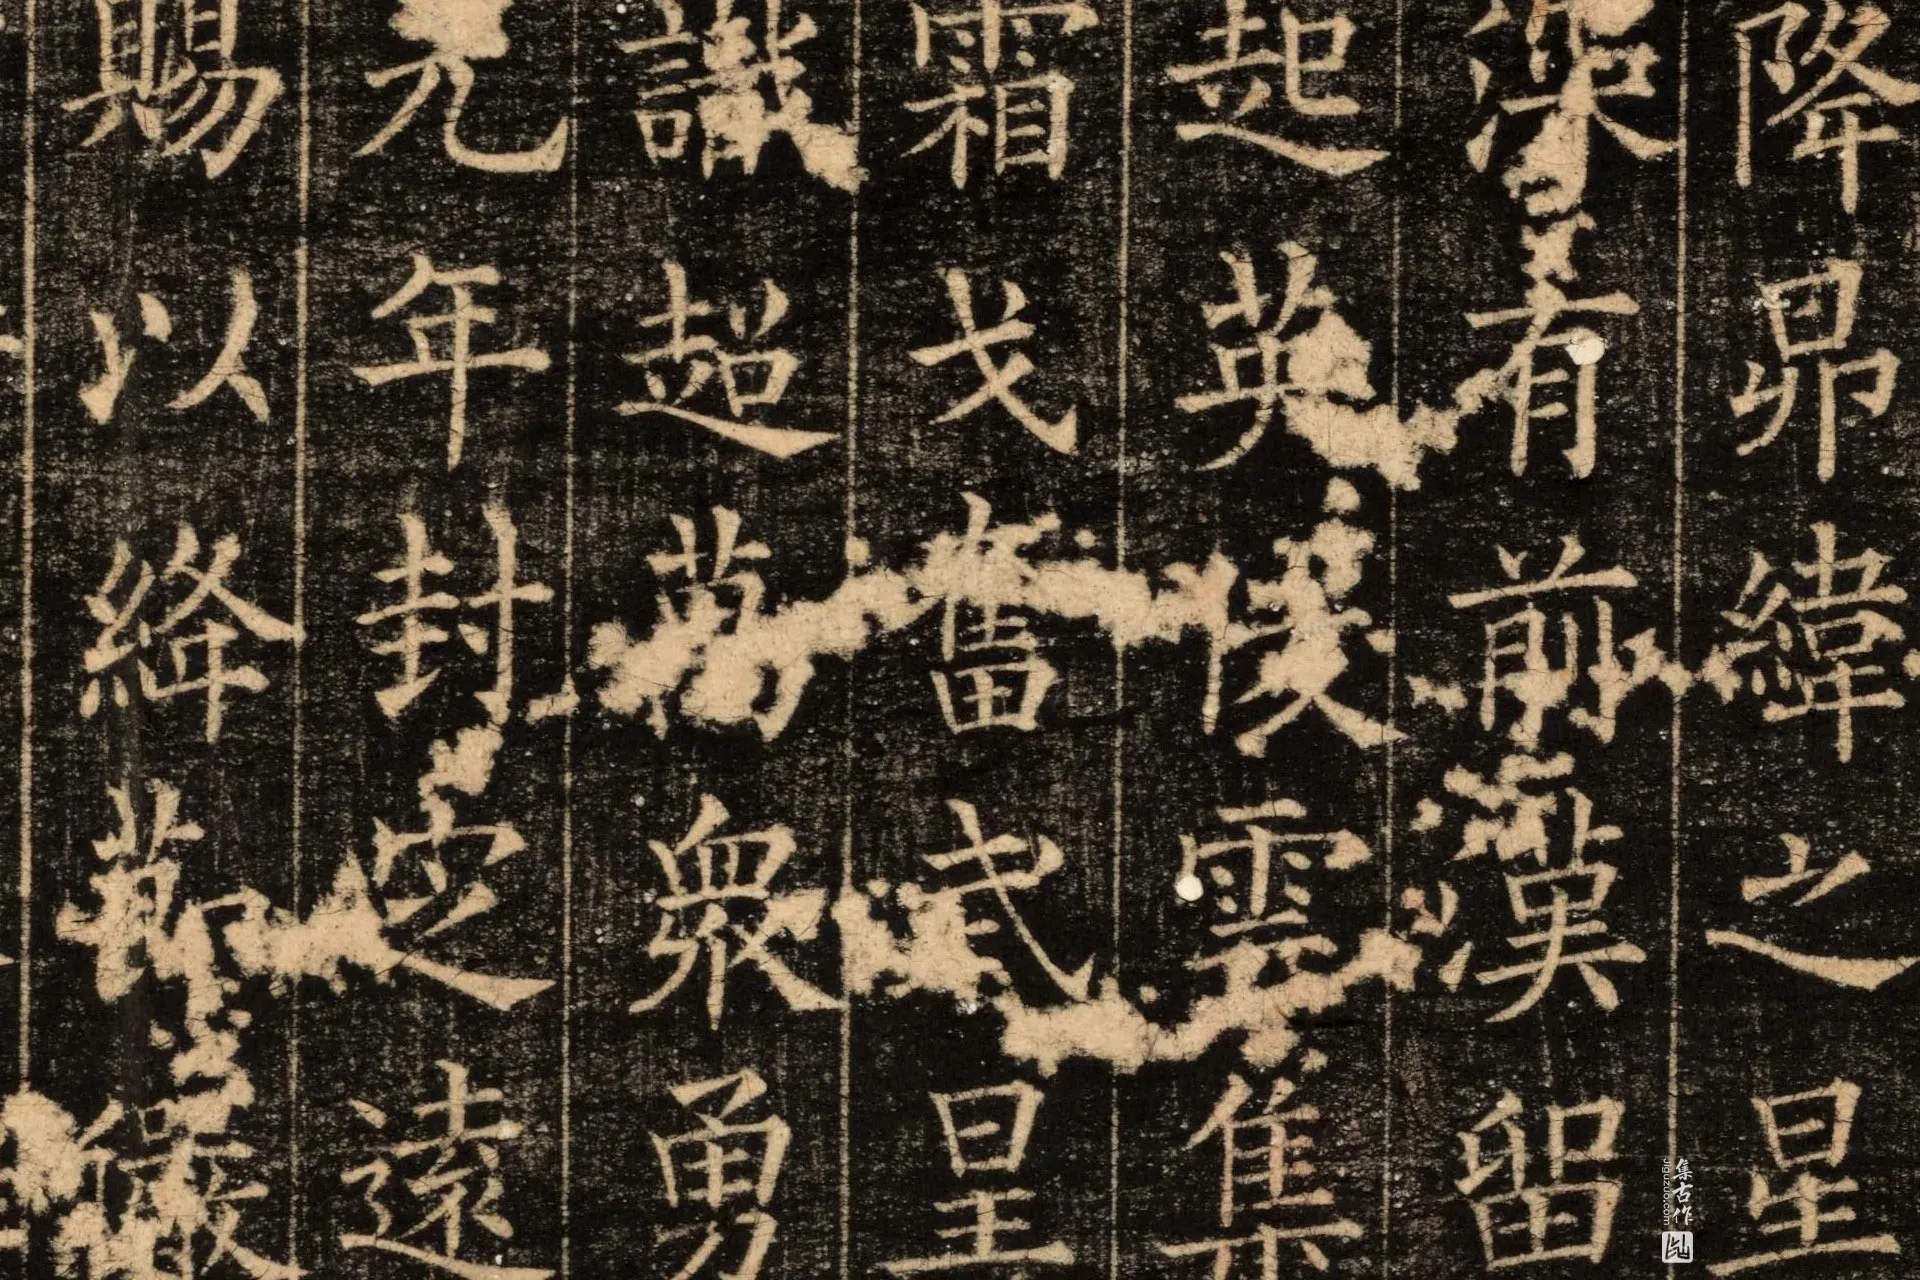 降昴緯之星
有前漢留
起英陵雲集
霜戈奮武星
識超萬衆勇
元年封定遠
賜以絳節
集古作
Jiguzuo.com